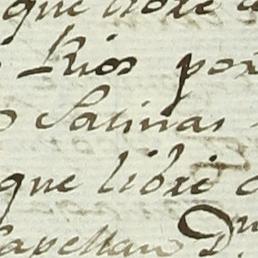 que libré
Rios por
Salinas
que libré
Capellan Dⁿ